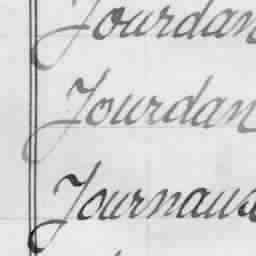 Jourdan
Jourdan
Journaus